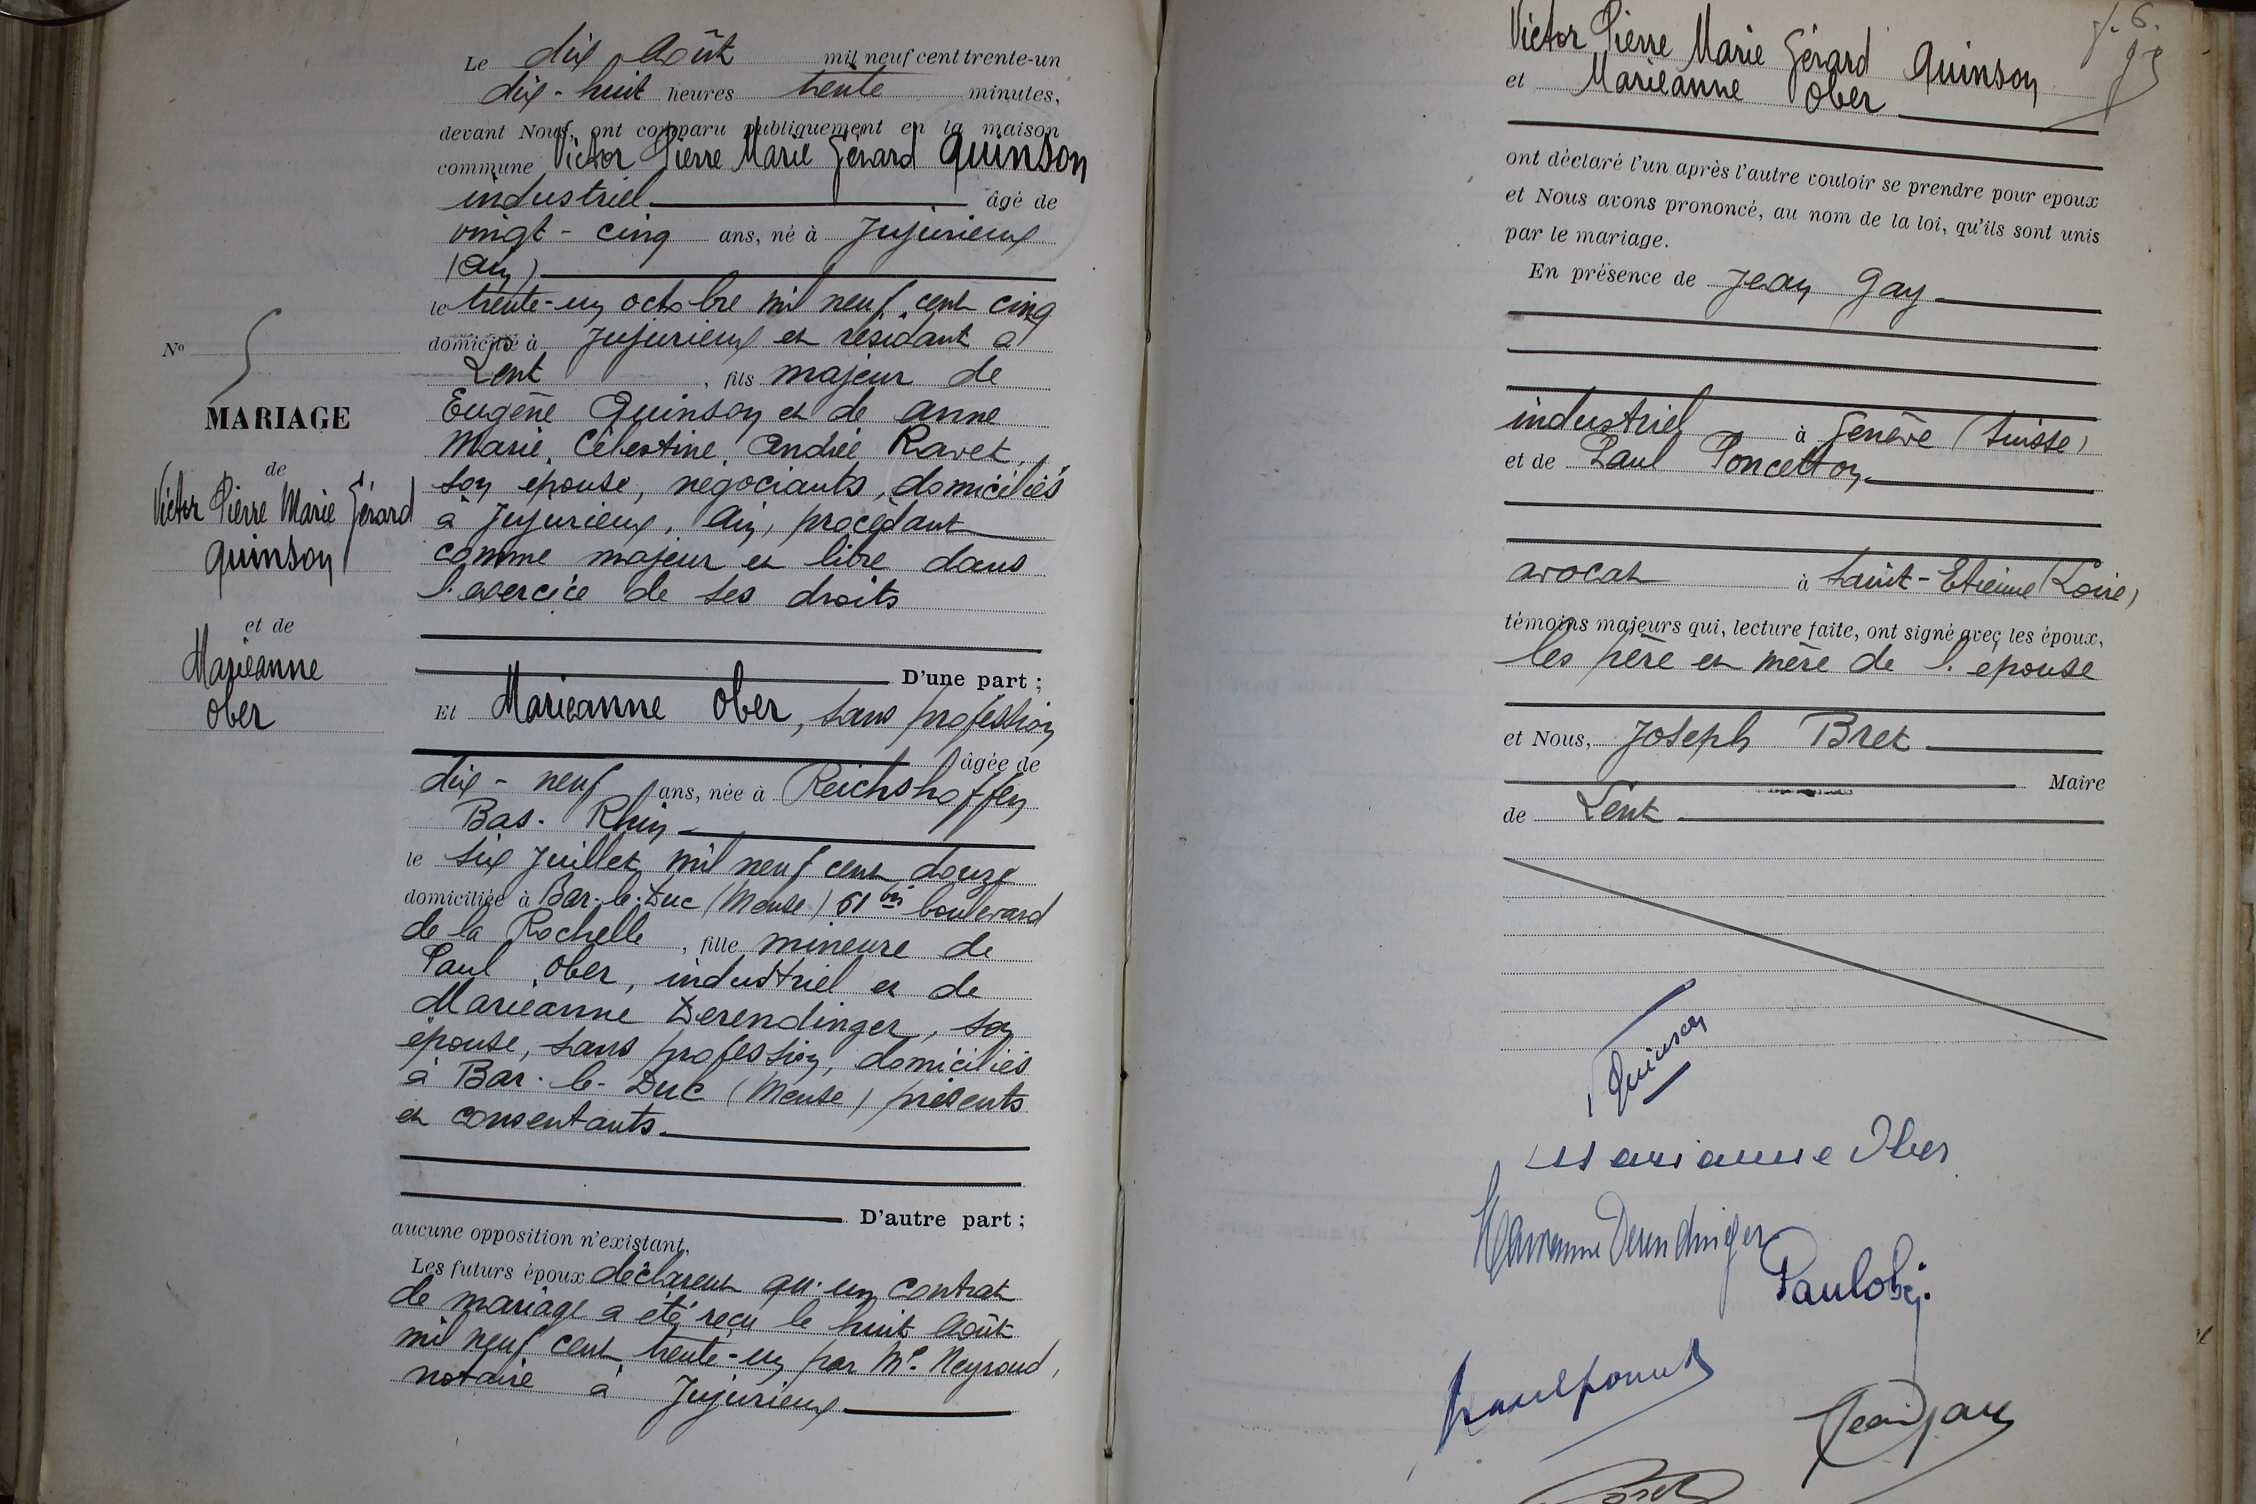 Le dix Août mil neuf cent trente-un
dix-huit heures trente minutes,
devant Nous, ont comparu publiquement en la maison
commune Victor Pierre Marie Gérard Quinson
industriel âgé de
vingt-cinq ans, né à Jujurieux
(Ain)
le trente-un octobre mil neuf cent cinq
domicilié à Jujurieux et résidant à
Lent, fils majeur de
Eugène Quinson et de Anne
Marie, Célestine, Andrée Ravet,
son épouse, négociants, domiciliés
à Jujurieux, Ain, procédant
comme majeur et libre dans
l'exercice de ses droits
D'une part ;
Et Marieanne Ober, sans profession
âgée de
dix-neuf ans, née à Reichshoffen
Bas-Rhin
le six Juillet mil neuf cent douze
domiciliée à Bar-le-Duc (Meuse) 61 bis boulevard
de la Rochelle, fille mineure de
Paul Ober, industriel et de
Marieanne Derendinger, son
épouse, sans profession, domiciliés
à Bar-le-Duc (Meuse) présents
et consentants.
D'autre part ;
aucune opposition n'existant,
Les futurs époux déclarent qu'un contrat
de mariage a été reçu le huit Août
mil neuf cent trente-un par Me. Neyroud,
notaire à Jujurieux
N° 5
MARIAGE
de
Victor Pierre Marie Gérard
Quinson
et de
Marieanne
Ober
f. 6.
Victor Pierre Marie Gérard Quinson
et Marieanne Ober
ont déclaré l'un après l'autre vouloir se prendre pour epoux
et Nous avons prononcé, au nom de la loi, qu'ils sont unis
par le mariage.
En présence de Jean Gay
industriel à Genève (Suisse)
et de Paul Poncetton
avocat à Saint-Etienne (Loire)
témoins majeurs qui, lecture faite, ont signé avec les époux,
les père et mère de l'épouse
et Nous, Joseph Bret
Maire
de Lent
Quinson
Marianne Ober
Marianne Derendinger
Paul Ober
Jean Gay